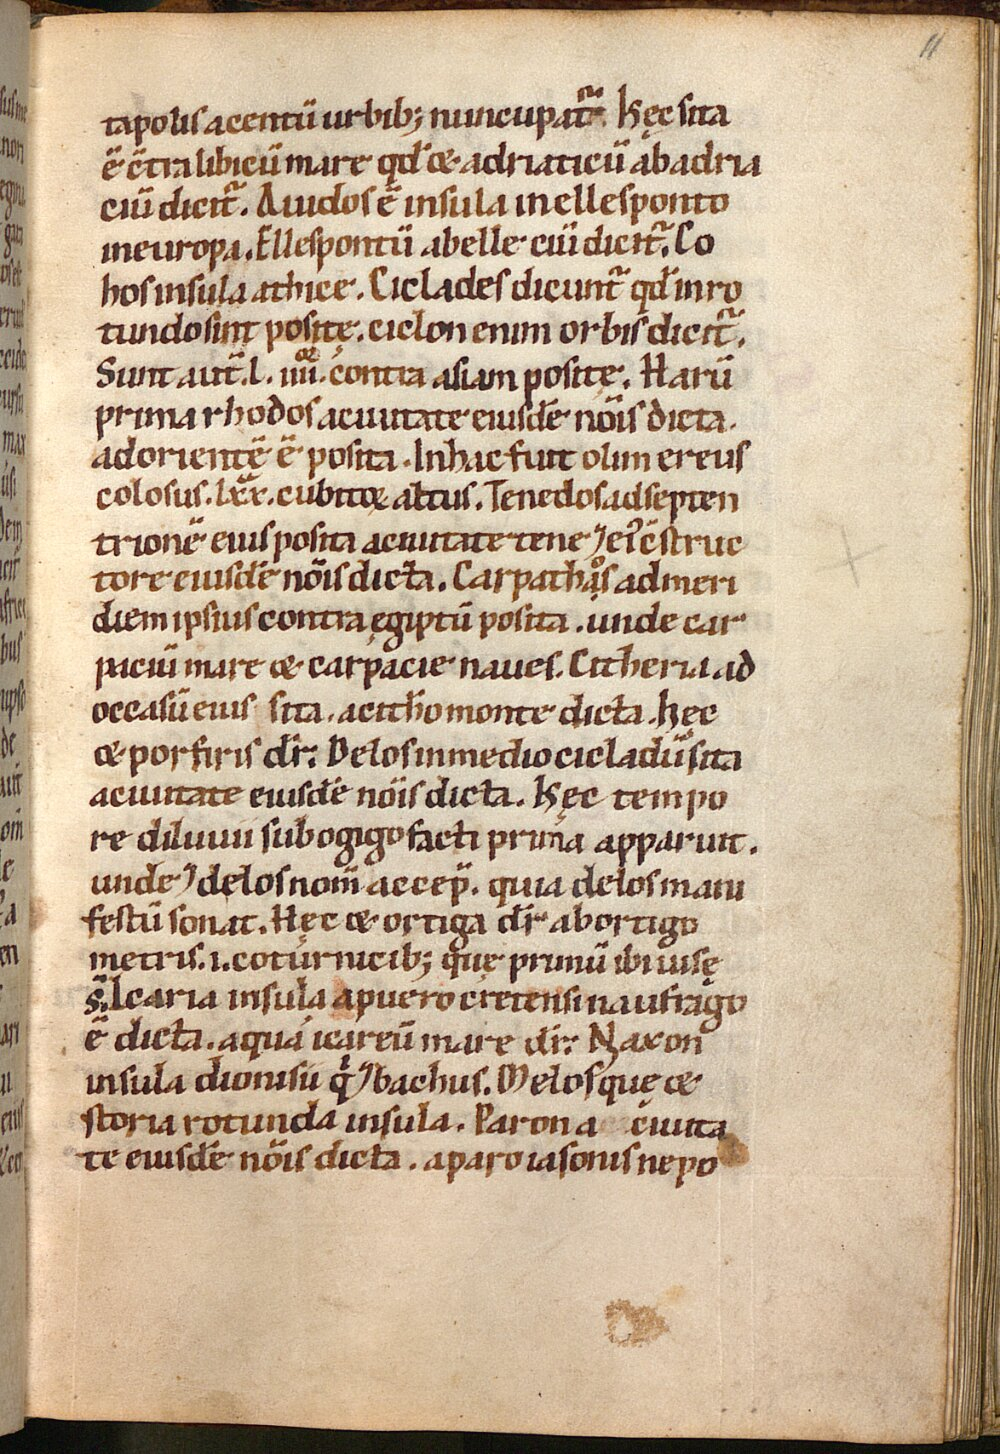 11
tapolis a centū urbib; nuncupat᷑. Hęc sita
ē c̄tra libicū mare qd̄ & adriaticū ab adria
ciū dicit᷑. Auidos ē insula in ellesponto
in europa. Ellespontū ab elle ciū dicit᷑. Co
hos insula athice. Ciclades dicunt᷑ qd̄ in ro
tundo sint positę. ciclon enim orbis dicit᷑.
Sunt aut̄. l. iiii. contra asiam positę. Harū
prima rhodos a ciuitate eiusdē nōis dicta.
ad orientē ē posita. In hac fuit olim ereus
colosus. lxx. cubitoꝝ altus. Tenedos ad septen
trionē eius posita a ciuitate tene ⁊ ei᷒ c̄struc
tore eiusdē nōis dicta. Carpathos ad meri
diem ipsius contra egiptū posita. unde car
paciū mare & carpacie naues. Citheria ad
occasū eius sita. a citho monte dicta. hęc
& porfiris dr̄. Delos in medio cicladū sita
a ciuitate eiusdē nōis dicta. Hęc tempo
re diluuii sub ogigo facti prima apparuit.
unde ⁊ delos nom̄ accep̄. quia delos mani
festū sonat. Hęc & ortiga dr̄ ab ortigo
metris. i. coturnicib; quę primū ibi uisę
s̄. Icaria insula a puero cretensi naufrago
ē dicta. a qua icareū mare dr̄. Naxon
insula dionisii q̇ ⁊ bachus. Melos quę &
storia rotunda insula. Paron a ciuita
te eiusdē nōis dicta. a paro iasonis nepo